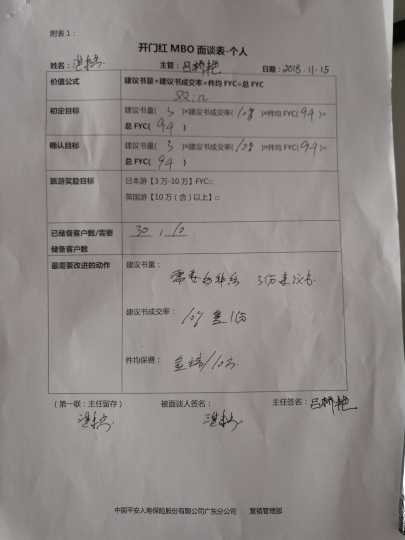 附表1：
开门红 MBO 面谈表-个人
姓名： 主管：吕桥艳 日期：2018.11-15
价值公式 建议书量×建议书成交率×件均 FYC=总 FYC
初定目标 建议书量( 3 )×建议书成交率( 10% )×件均 FYC(94)=
总 FYC( 94 )
确认目标 建议书量( 3 )×建议书成交率( 10% )×件均 FYC(94)=
总 FYC( 94 )
旅游奖励目标 日本游【3万-10万】FYC□
英国游【10万（含）以上】□
已储备客户数/需要 30 , 10
储备客户数
最需要改进的动作 建议书量：
需要 3份建议书
建议书成交率：
10%
件均保费：
（第一联：主任留存） 被面谈人签名： 主任签名：吕桥艳
中国平安人寿保险股份有限公司广东分公司 营销管理部